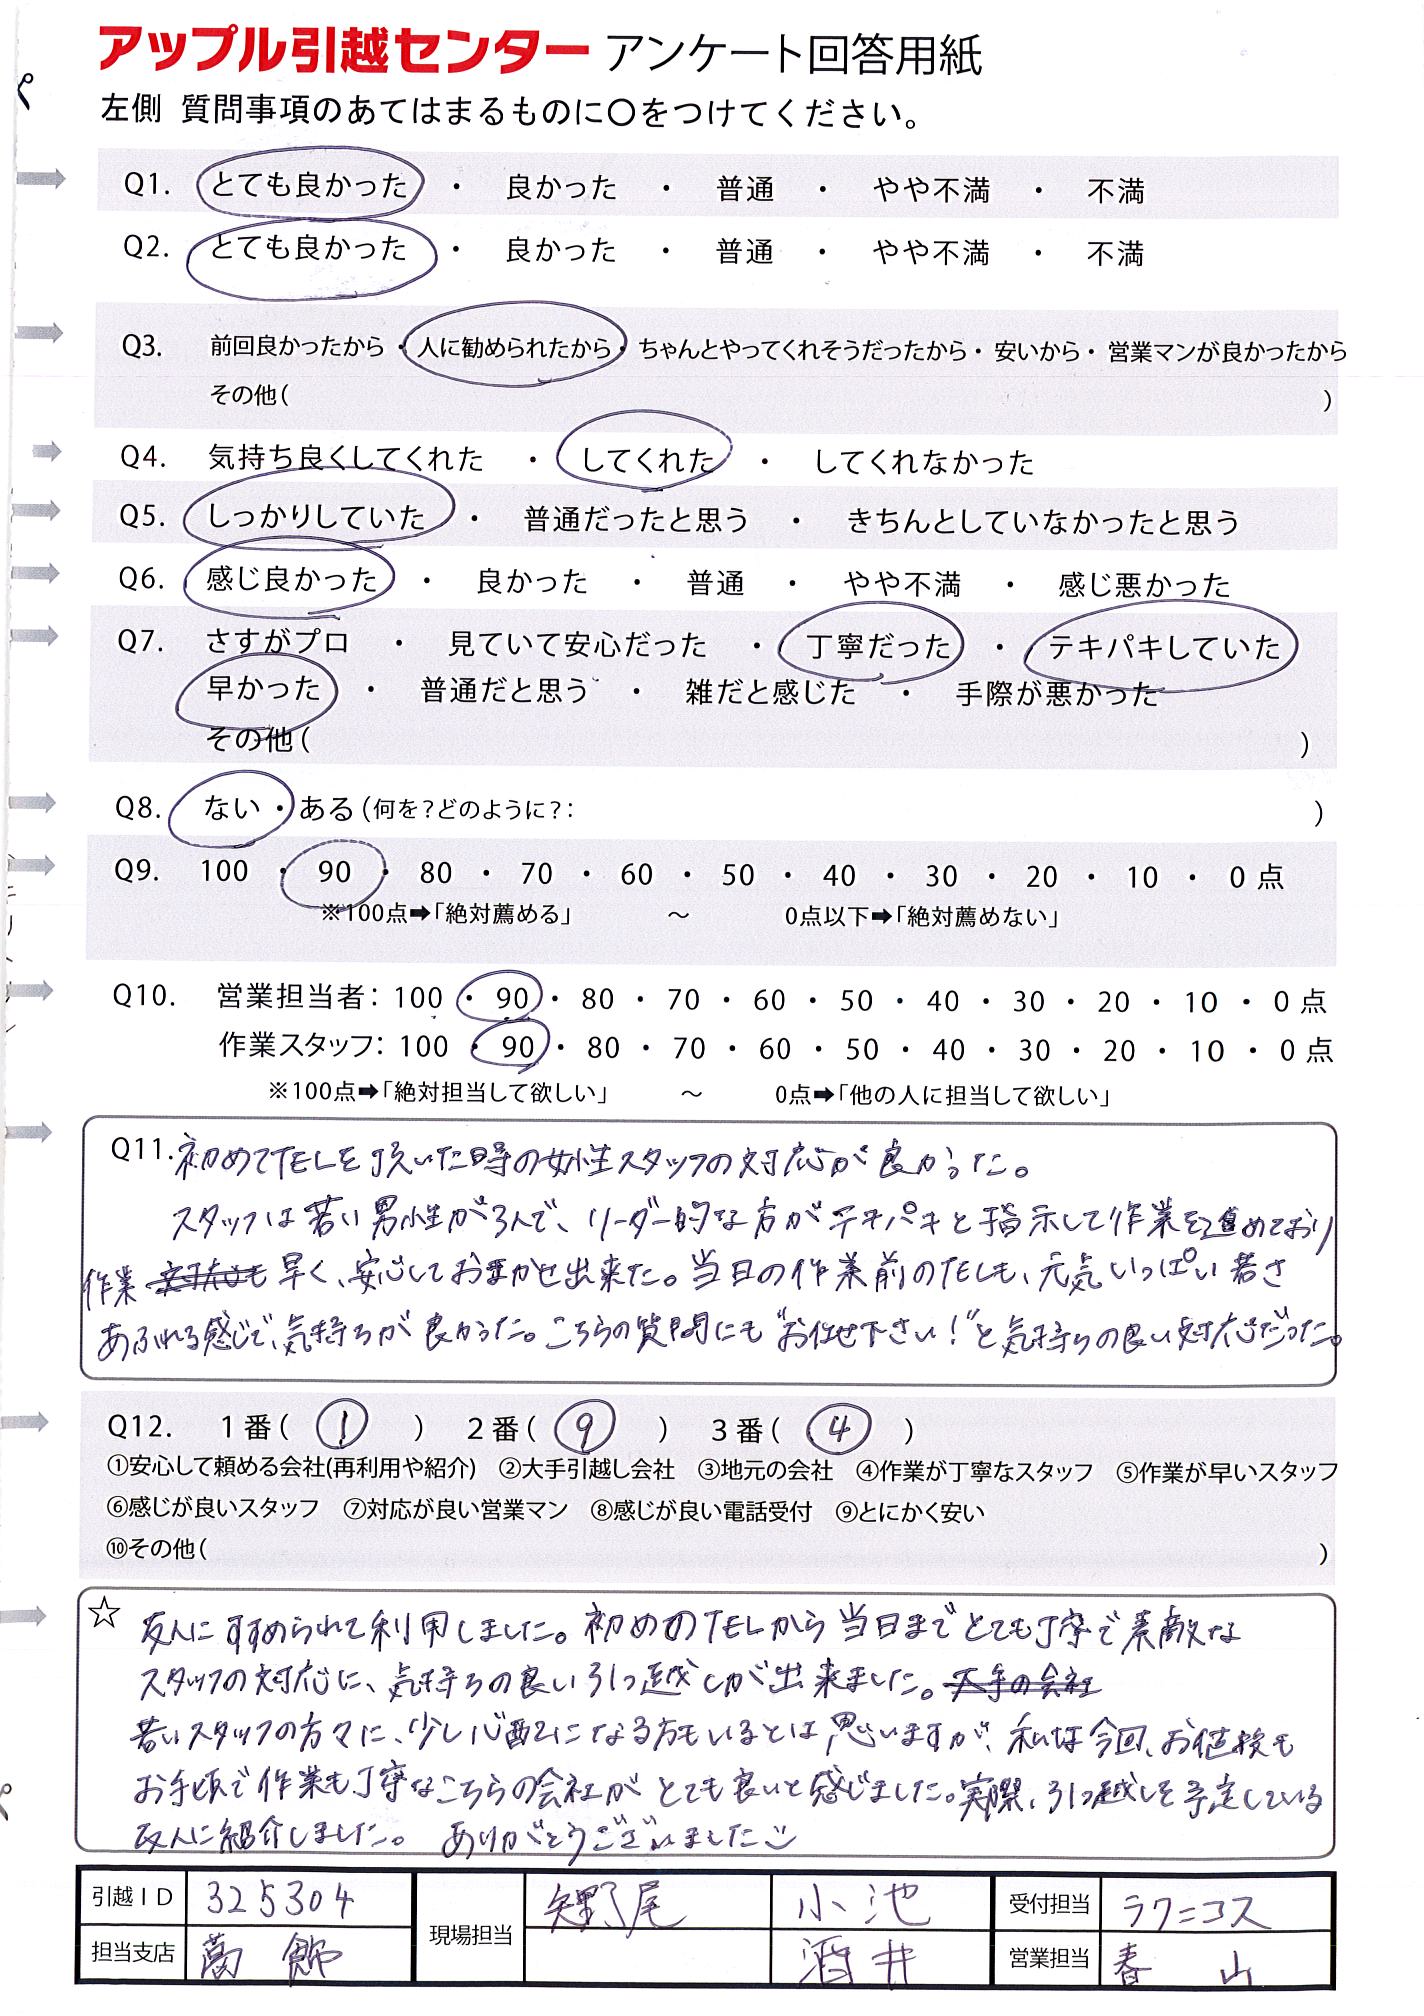 アップル引越センター アンケート回答用紙
左側 質問事項のあてはまるものに〇をつけてください。
Q1. とても良かった ・ 良かった ・ 普通 ・ やや不満 ・ 不満
Q2. とても良かった ・ 良かった ・ 普通 ・ やや不満 ・ 不満
Q3. 前回良かったから ・ 人に勧められたから ・ ちゃんとやってくれそうだったから ・ 安いから ・ 営業マンが良かったから
その他( )
Q4. 気持ち良くしてくれた ・ してくれた ・ してくれなかった
Q5. しっかりしていた ・ 普通だったと思う ・ きちんとしていなかったと思う
Q6. 感じ良かった ・ 良かった ・ 普通 ・ やや不満 ・ 感じ悪かった
Q7. さすがプロ ・ 見ていて安心だった ・ 丁寧だった ・ テキパキしていた
早かった ・ 普通だと思う ・ 雑だと感じた ・ 手際が悪かった
その他( )
Q8. ない ・ ある (何を?どのように?: )
Q9. 100 ・ 90 ・ 80 ・ 70 ・ 60 ・ 50 ・ 40 ・ 30 ・ 20 ・ 10 ・ 0 点
※100点➡「絶対薦める」 ～ 0点以下➡「絶対薦めない」
Q10. 営業担当者: 100 ・ 90 ・ 80 ・ 70 ・ 60 ・ 50 ・ 40 ・ 30 ・ 20 ・ 10 ・ 0 点
作業スタッフ: 100 ・ 90 ・ 80 ・ 70 ・ 60 ・ 50 ・ 40 ・ 30 ・ 20 ・ 10 ・ 0 点
※100点➡「絶対担当して欲しい」 ～ 0点➡「他の人に担当して欲しい」
Q11. 初めてTELを頂いた時の女性スタッフの対応が良かった。
スタッフは若い男性が3人で、リーダー的な方がテキパキと指示して作業を進めており
作業 早く、安心しておまかせ出来た。当日の作業前のTELも、元気いっぱい若さ
あふれる感じで、気持ちが良かった。こちらの質問にも"お任せ下さい!"と気持ちの良い対応だった。
Q12. 1番( 1 ) 2番( 9 ) 3番( 4 )
①安心して頼める会社(再利用や紹介) ②大手引越し会社 ③地元の会社 ④作業が丁寧なスタッフ ⑤作業が早いスタッフ
⑥感じが良いスタッフ ⑦対応が良い営業マン ⑧感じが良い電話受付 ⑨とにかく安い
⑩その他( )
☆ 友人にすすめられて利用しました。初めのTELから当日までとても丁寧で素敵な
スタッフの対応に、気持ちの良い引っ越しが出来ました。大手の会社
若いスタッフの方々に、少し心配になる方もいるとは思いますが、私は今回、お値段も
お手頃で作業も丁寧なこちらの会社がとても良いと感じました。実際、引っ越しを予定している
友人に紹介しました。 ありがとうございました
引越ID 325304 現場担当 矢野尾 小池 受付担当 ラクニコス
担当支店 葛飾 酒井 営業担当 春山